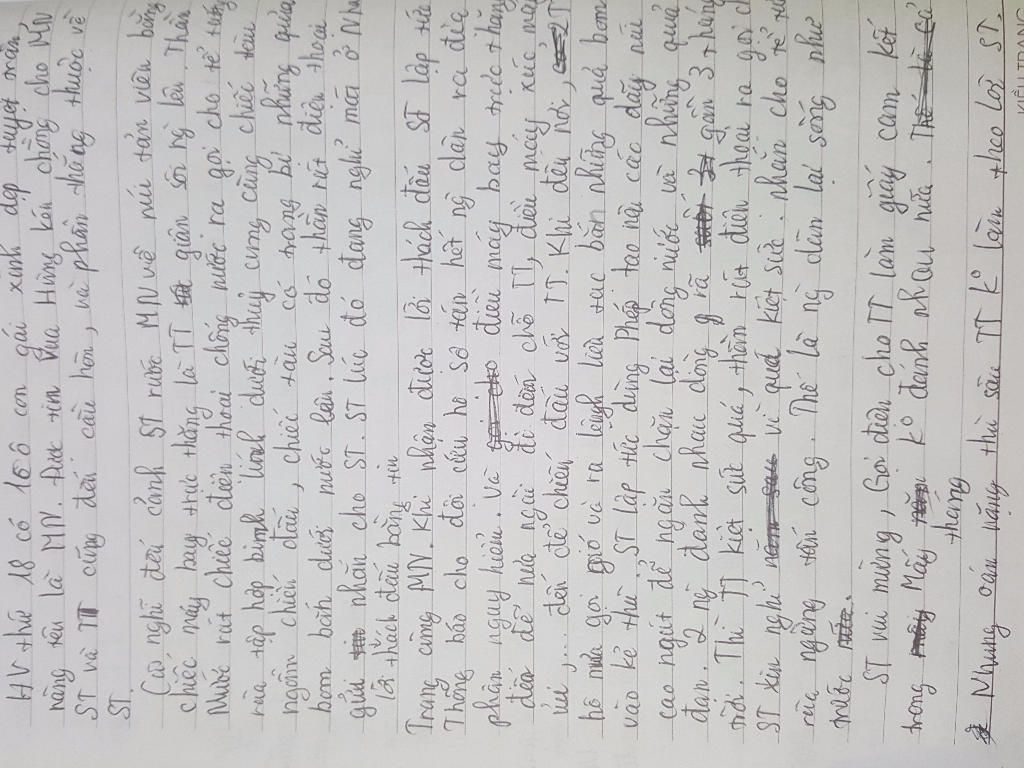 HV thứ 18 có 1 cô con gái xinh đẹp tuyệt trần
nàng tên là MN. Được tin vua Hùng kén chồng cho MN
ST và TT cũng đến cầu hôn, và phần thắng thuộc về
ST.
Cứ nghĩ đến cảnh ST rước MN về núi tản viên bằng
chiếc máy bay trực thăng là TT giận sôi ng lên. Thần
Nước rút chiếc điện thoại chống nước ra gọi cho tể tướng
rùa tập hợp binh lính dưới thuỷ cung cùng chiếc tàu
ngầm chiến đấu, chiếc tàu có trang bị những quả
bom bánh dưới nước lên. Sau đó thần rút điện thoại
gửi nhắn cho ST. ST lúc đó đang nghỉ mát ở Nha
lời thách đấu bằng tn
Trang cùng MN. Khi nhận được lời thách đấu ST lập tức
Thông báo cho đội cứu hộ sơ tán hết ng dân ra địa
phận nguy hiểm. Và điều máy bay trực thăng
đến để nửa ngài đi đến chỗ TT, điều máy xúc máy
ủi,... đến để chiến đấu với TT. Khi đến nơi, TT
hô mưa gọi gió và ra lệnh liên tục bắn những quả bom
vào kẻ thù ST lập tức dùng Phép tạo nên các dãy núi
cao ngút để ngăn chặn lại dòng nước và những quả
đạn. 2 ng đánh nhau dòng rã gần 3 tháng
trời. Thì TT kiệt sức quá, thần rút điện thoại ra gọi
ST xin nghỉ vì quá kiệt sức. nhắn cho tể tướng
rùa ngừng tấn công. Thế là ng dân lại sống như
trước.
ST vui mừng, Gọi điện cho TT làm giấy cam kết
trong Mấy tháng k° đánh nhau nữa.
Nhưng oán nặng thù sâu TT k° làm theo lời ST.